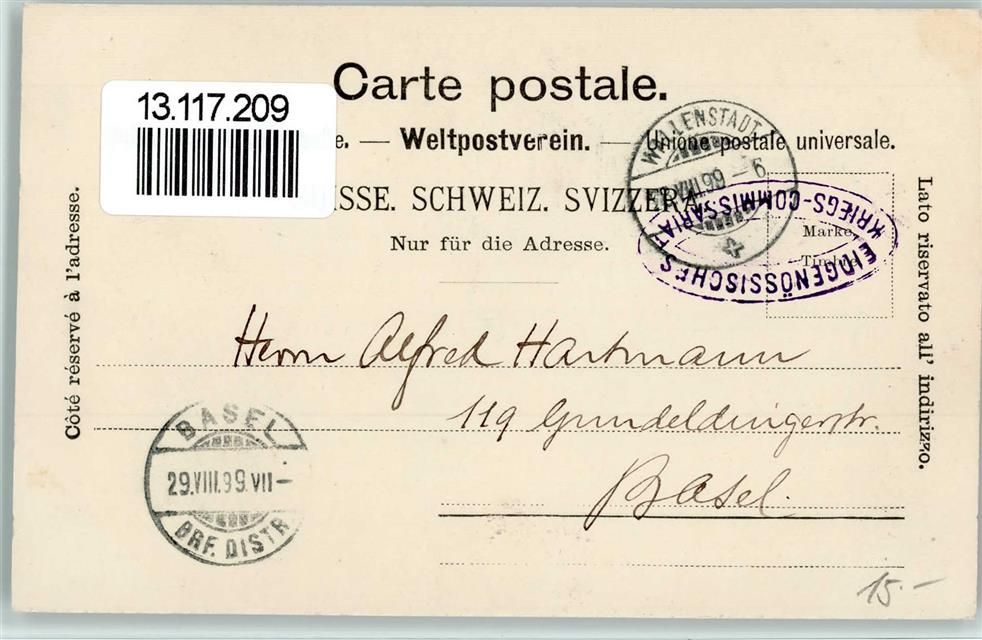 Carte postale.
13.117.209
e. — Weltpostverein. — Unione postale universale.
ISSE. SCHWEIZ. SVIZZERA.
Nur für die Adresse.
WALLENSTADT
VIII.99 – 6
EIDGENÖSSISCHES
KRIEGS-COMMISSARIAT
Marke.
Timbre
Côté réservé à l'adresse.
Lato riservato all' indirizzo.
Herrn Alfred Hartmann
119 Gundeldingerstr.
Basel.
BASEL
29.VIII.99.VII –
BRF. DISTR
15.–